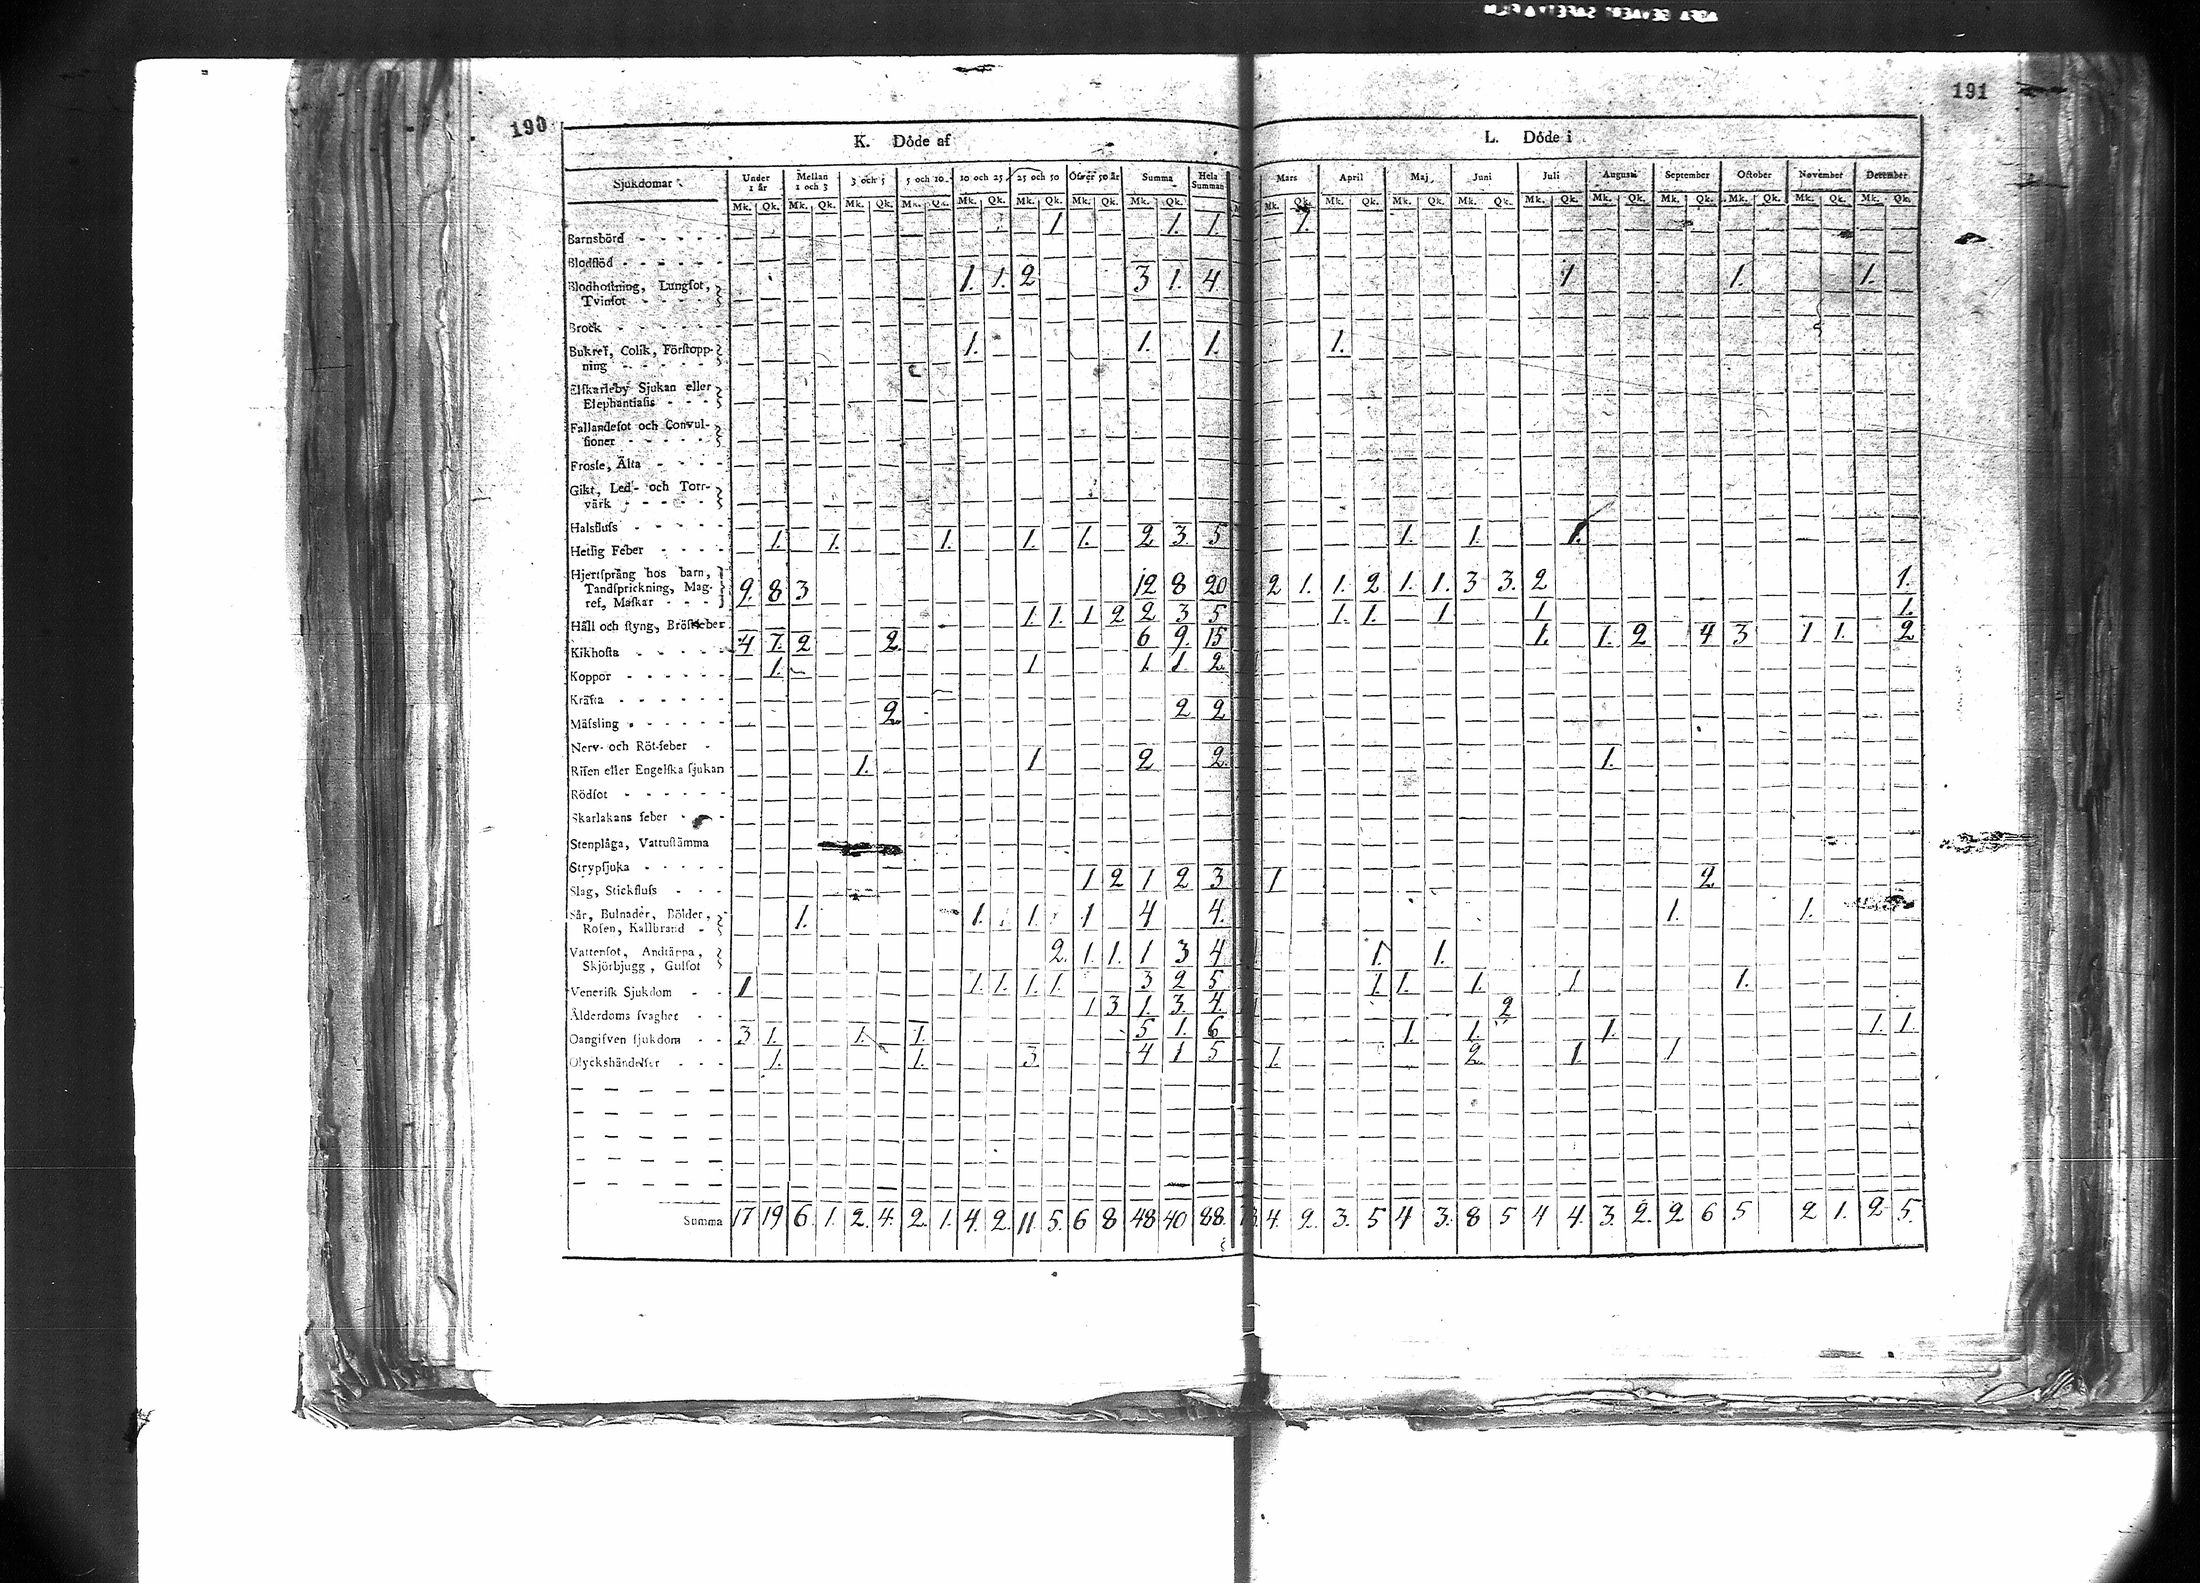 190
191
K. Dôde af
L. Dôde i
Sjukdomar.
Under 1 år
Mellan 1 och 3
3 och 5
5 och 10
10 och 25
25 och 50
Öfver 50 år
Summa
Hela Summan
Mars
April
Maj
Juni
Juli
Augusti
September
October
November
December
Mk. Qk. Mk. Qk. Mk. Qk. Mk. Qk. Mk. Qk. Mk. Qk. Mk. Qk. Mk. Qk. Mk. Qk. Mk. Qk. Mk. Qk. Mk. Qk. Mk. Qk. Mk. Qk. Mk. Qk. Mk. Qk. Mk. Qk. Mk. Qk.
Barnsbörd 1 1. 1. 1.
Blodflöd
Blodhostning, Lungsot, Tvinsot 1. 1. 2 3 1. 4 1 1. 1.
Brock
Bukref, Colik, Förstoppning 1. 1. 1. 1.
Elfkarleby Sjukan eller Elephantiasis
Fallandesot och Convulsioner
Frossa, Älta
Gikt, Led- och Torrvärk
Halsfluss
Hetsig Feber 1. 1. 1. 1. 1. 2 3. 5 1. 1. 1.
Hjertsprång hos barn, Tandsprickning, Magref, Maskar 9. 8 3 12 8 20 2 1. 1. 2 1. 1. 3 3. 2 1.
Håll och styng, Bröstfeber 1 1. 1 2 2 3 5 1 1. 1 1 1.
Kikhosta 4 7. 2 2. 6 9. 15 1. 1. 2 4 3 1 1. 2
Koppor 1. 1 1. 1 2
Kräfta
Mässling 2. 2 2
Nerv- och Röt-feber
Risen eller Engelska sjukan 1. 1 2 2. 1.
Rödsot
Skarlakans feber
Stenplåga, Vattustämma
Strypsjuka
Slag, Stickfluss 1 2 1 2 3 1 2
Sår, Bulnader, Bölder, Rosen, Kallbrand 1. 1. 1. 1 4 4. 1. 1.
Vattensot, Andtäppa, Skjörbjugg, Gulsot 2. 1. 1. 1 3 4 1. 1.
Venerisk Sjukdom 1 1. 1. 1. 1. 3 2 5 1. 1. 1. 1 1.
Ålderdoms svaghet 1 3 1. 3. 4. 2
Oangifven sjukdom 3 1. 1. 1. 5 1. 6 1. 1. 1. 1. 1.
Olyckshändelser 1. 1. 3. 4 1 5 1. 2. 1. 1
Summa 17 19 6. 1. 2. 4. 2. 1. 4. 2. 11. 5. 6 8 48 40 88. 4. 2. 3. 5 4 3. 8 5 4 4. 3. 2. 2 6 5 2 1. 2 5.